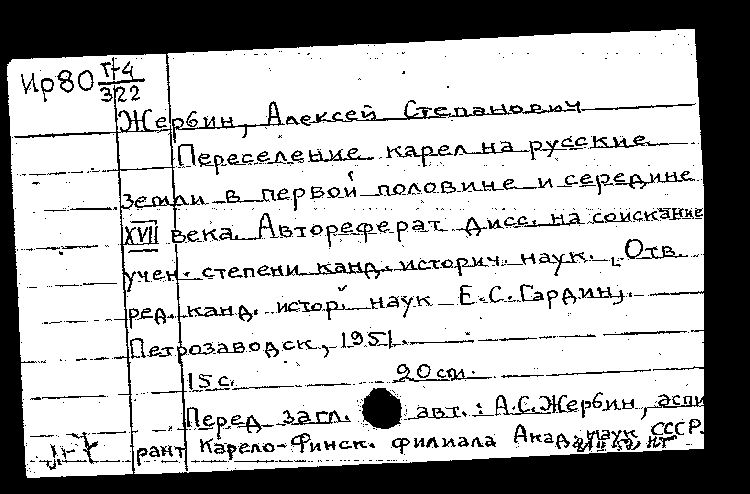 Ир80 Г-4
322
Жербин, Алексей Степанович
Переселение карел на русские
земли в первой половине и середине
XVII века. Автореферат дисс. на соискание
учен. степени канд. историч. наук. [Отв.
ред. канд. истор. наук Е.С. Гардин].
Петрозаводск, 1951.
15 с. 20 см.
Перед загл. авт.: А.С. Жербин, аспи
рант Карело-Финск. филиала Акад. наук СССР.